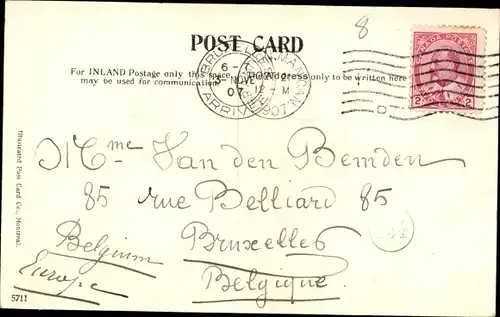 8
POST CARD
For INLAND Postage only this space
may be used for communication.
only to be written here
BRUXELLES
6-
NOVE
07
ARRIV
MAN. CAN.
12 - M
1907
CANADA POSTAGE
2 2
D
Mme Van den Bemden
85 rue Belliard 85
Belgium Bruxelles
Europe Belgique
Illustrated Post Card Co., Montreal.
5711